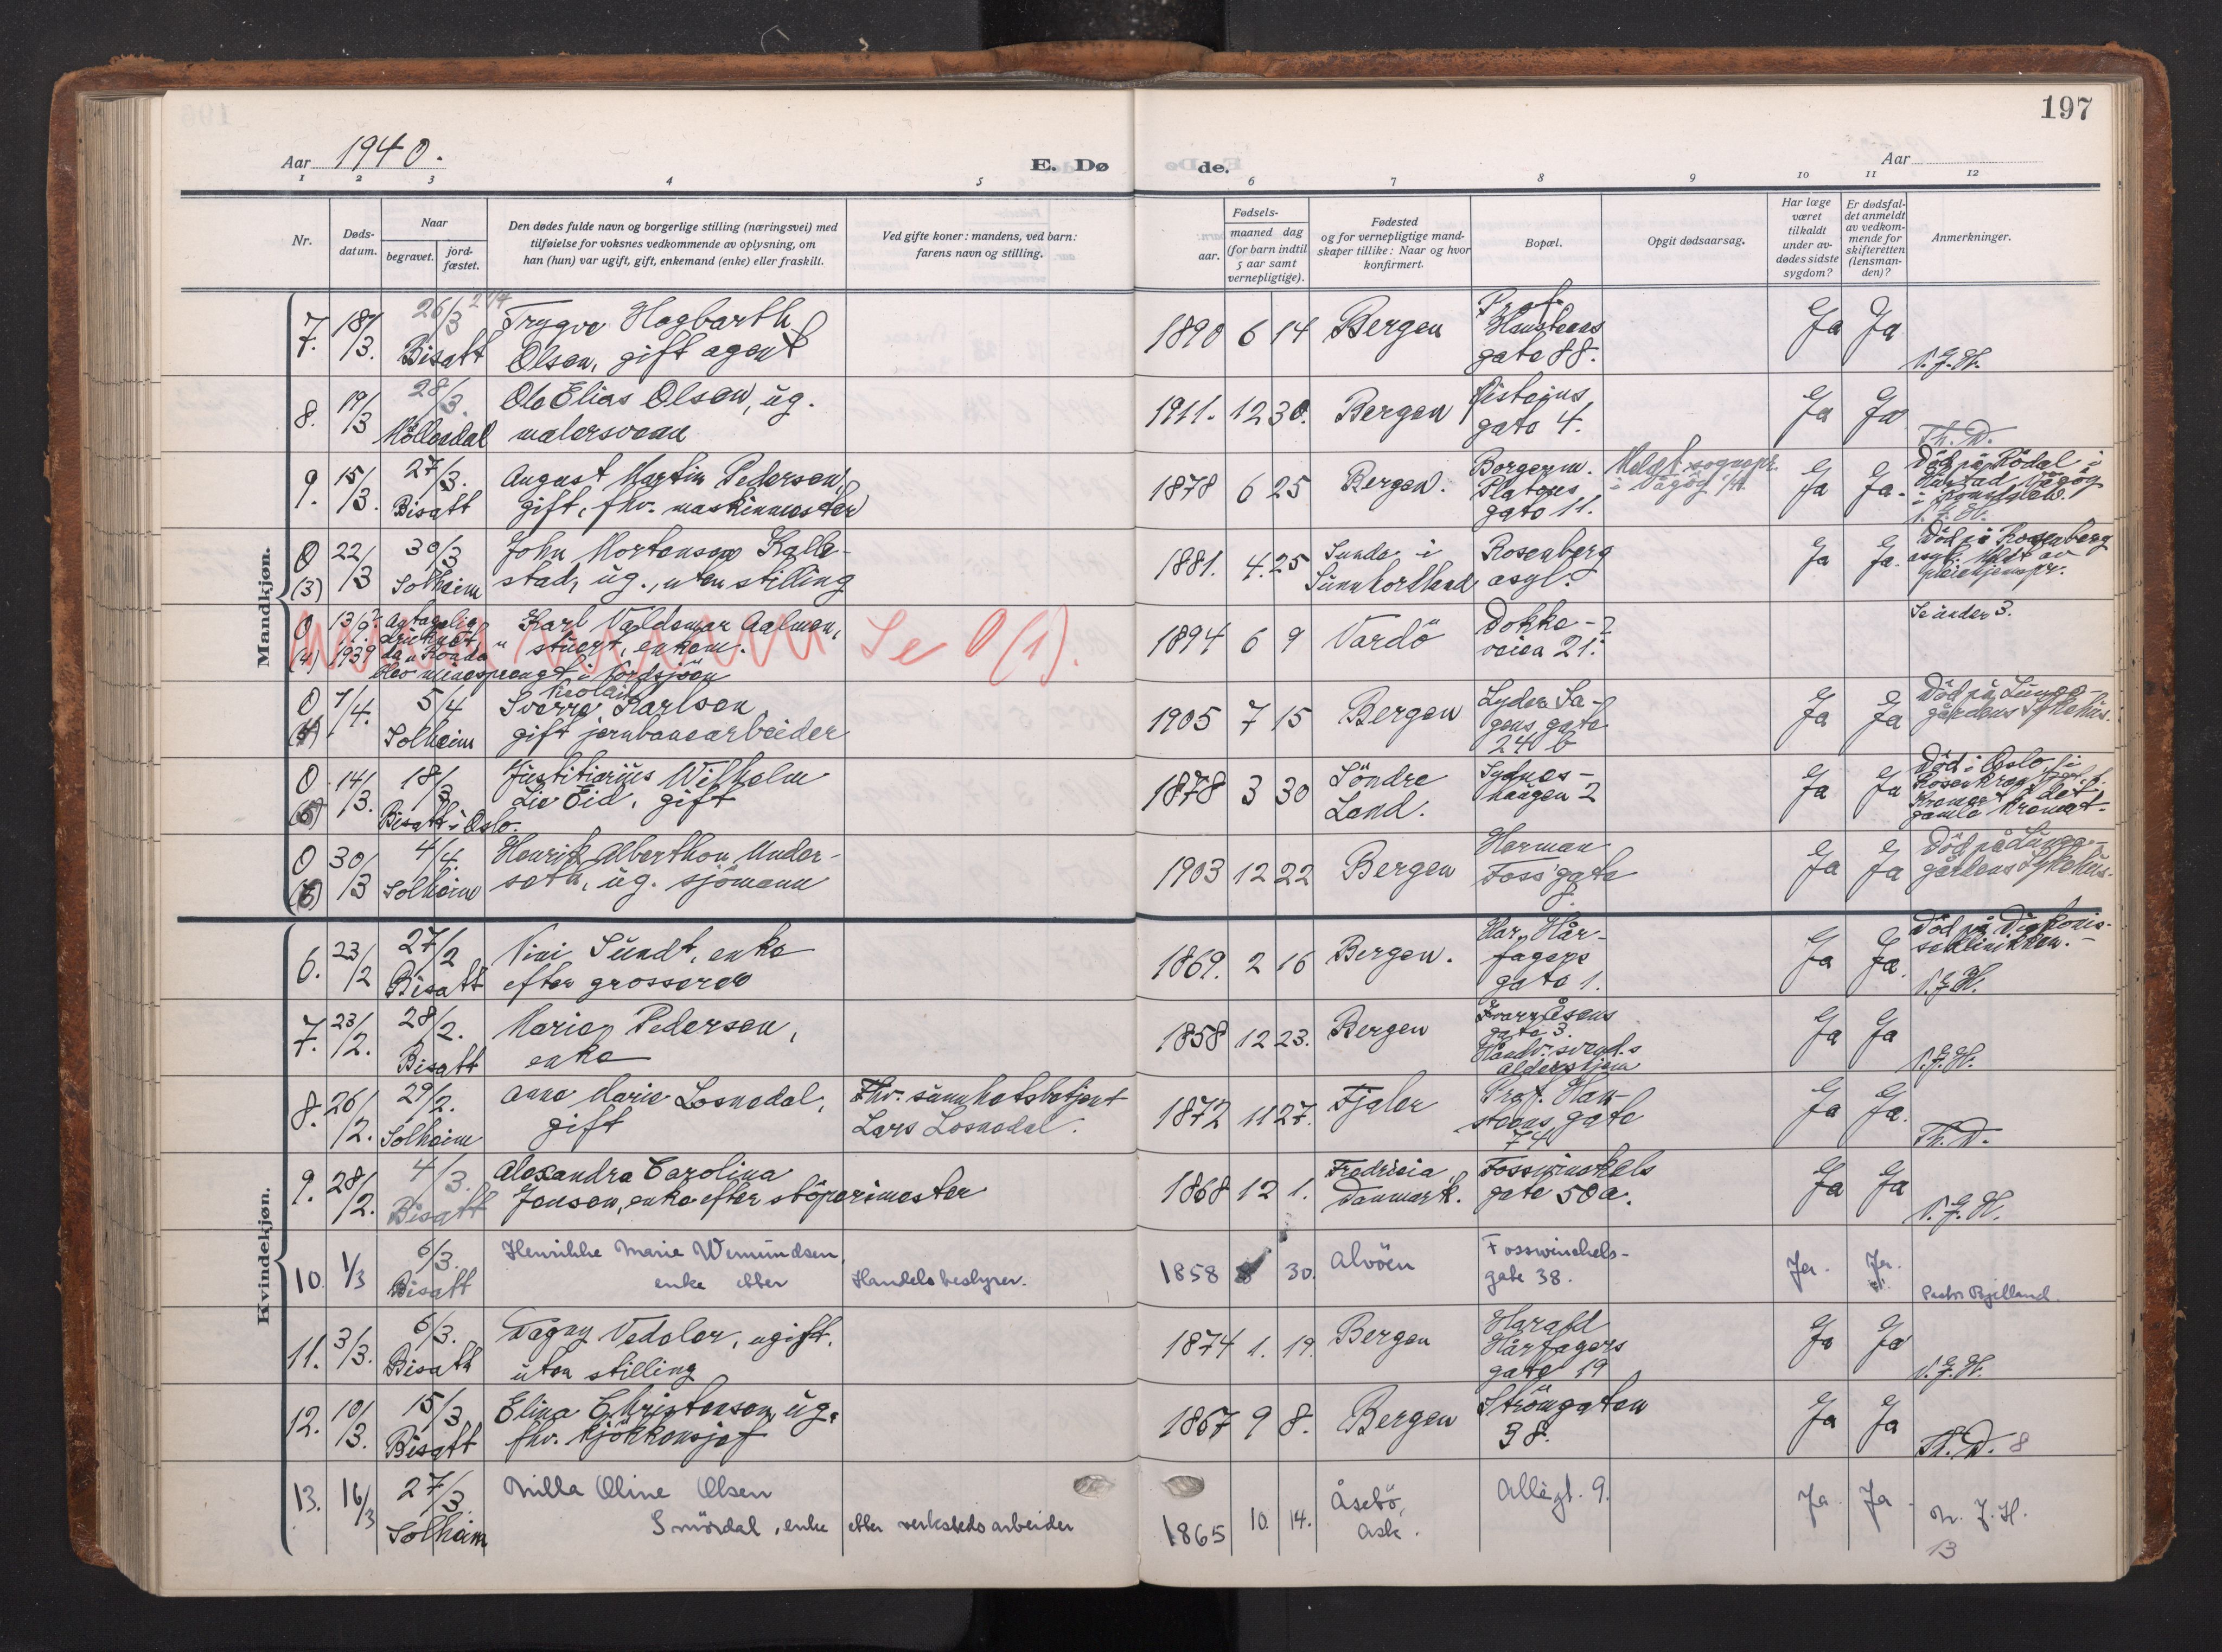 197
Aar 1940.
E. Dø
de.
Aar
1 2 3 4 5 6 7 8 9 10 11 12
Nr.
Døds-
datum.
Naar
begravet.
jord-
fæstet.
Den dødes fulde navn og borgerlige stilling (næringsvei) med
tilføielse for voksnes vedkommende av oplysning, om
han (hun) var ugift, gift, enkemand (enke) eller fraskilt.
Ved gifte koner: mandens, ved barn:
farens navn og stilling.
Fødsels-
aar.
maaned dag
(for barn indtil
5 aar samt
vernepligtige).
Fødested
og for vernepligtige mand-
skaper tillike: Naar og hvor
konfirmert.
Bopæl.
Opgit dødsaarsag.
Har læge
været
tilkaldt
under av-
dødes sidste
sygdom?
Er dødsfal-
det anmeldt
av vedkom-
mende for
skifteretten
(lensman-
den)?
Anmerkninger.
Mandkjøn.
7. 18/3. 26/3 Bisatt
Trygve Hagbarth
Olsen, gift agent
1890 6 14 Bergen
Prof.
Hansteens
gate 88.
Ja Ja
N.J.H.
8. 19/3 28/3. Möllendal
Ole Elias Olsen, ug.
malersvenn
1911. 12 30. Bergen
gate 4.
Ja Ja
Th. D.
9. 15/3. 27/3. Bisatt
August Martin Pedersen,
gift, fhv. maskinmester
1878 6 25 Bergen.
Borgerm.
Platous
gate 11.
Meldt sognepr.
i Vågöy
Ja Ja.
Död på Rödal i
i Romsdalen.
N.J.H.
0 (3) 22/3 30/3 Solheim
John Mortensen Kalle-
stad, ug., uten stilling
1881. 4. 25
Sunde i
Sunnhordland
Rosenberg
asyl.
Ja Ja.
Död på Rosenberg
asyl. Meldt av
0 (4) 1939
Antagelig
blev minesprengt i Nordsjöen
Karl Valdemar Aalmen,
stuert, enkem.
Se 0 (1).
1894 6 9 Vardö
Dokke-
veien 21.
Se under 3.
0 1/4. 5/4 Solheim
Nicolai
Sverre Karlsen
gift jernbanearbeider
1905 7 15 Bergen
Lyder Sa-
gens gate
24 b
Ja Ja
Död på Lunge-
gårdens Sykehus.
0 14/3. 18/3 Bisatt i Oslo.
Justitiarius Wilhelm
Lie Eid, gift
1878 3 30
Söndre
Land.
Sydnes-
haugen 2
Ja Ja
Död i Oslo i
gamle Kremat.
0 30/3 4/4. Solheim
Henrik Alberthon Under-
seth, ug. sjömann
1903 12 22 Bergen
Herman
Foss' gate
Ja Ja
Död på Lunge-
gårdens Sykehus.
Kvindekjøn.
6. 23/2 27/2 Bisatt
Nini Sundt, enke
efter grosserer
1869. 2 16 Bergen.
Har. Hår-
fagers
gate 1.
Ja Ja.
Död på Diakonis-
seklinikken.
N.J.H.
7. 23/2. 28/2. Bisatt
Marie Pedersen,
enke
1858 12 23. Bergen
Ivar Åsens
gate 3.
Håndv. svend.s
aldershjem
Ja Ja
N.J.H.
8. 26/2. 29/2. Solheim
Anne Marie Losnedal,
gift
Fhv. sunnhetsbetjent
Lars Losnedal.
1872 11 27. Fjaler
Prof. Han-
steens gate
74
Ja Ja.
Th. D.
9. 28/2. 4/3. Bisatt
Alexandra Carolina
Jensen, enke efter stöperimester
1868 12 1.
Fredricia
Danmark.
Fosswinckels
gate 50a.
Ja Ja
N.J.H.
10. 1/3 6/3. Bisatt
Henrikke Marie Wemundsen,
enke etter Handelsbestyrer.
1858 30. Alvöen
Fosswinckels-
gate 38.
Ja. Ja.
Pastor Bjelland.
11. 3/3. 6/3. Bisatt
Dagny Vedeler, ugift,
uten stilling
1874 1. 19. Bergen
Harald
Hårfagers
gate 19
Ja Ja
N.J.H.
12. 10/3. 15/3 Bisatt
Elina Christensen, ug.
fhv. kjökkensjef
1867 9 8. Bergen
Strömgaten
38.
Ja Ja
Th. D. 8
13. 16/3 27/3. Solheim
Milla Oline Olsen
Smördal, enke etter verkstedsarbeider
1865 10. 14.
Åsebö,
Ask.
Allégt. 9.
Ja Ja
N. J. H.
13